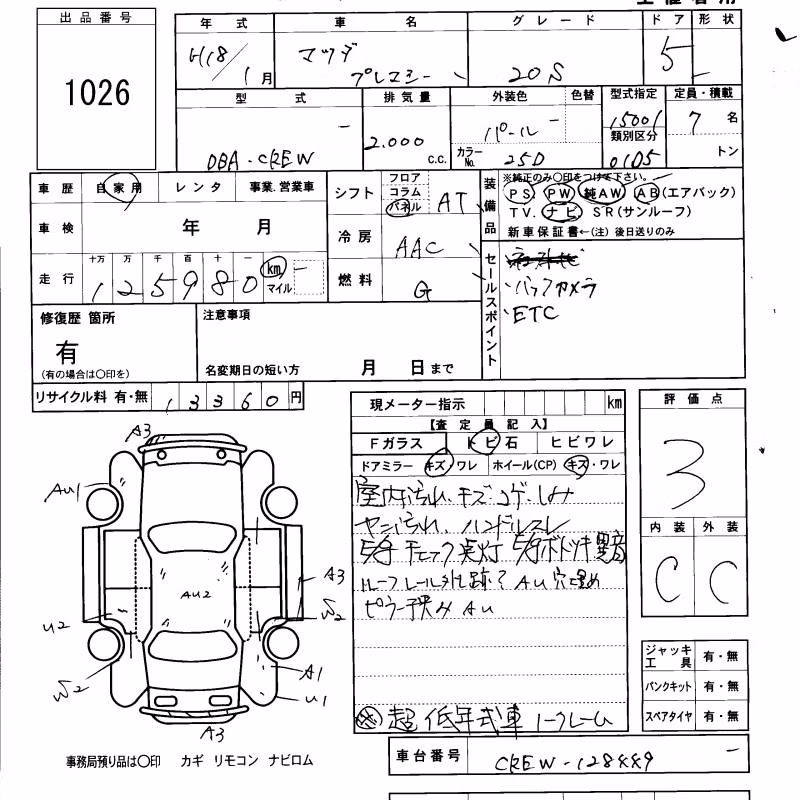 出品番号
1026
年式
車名
グレード
ドア
形状
H18/1月
マツダ
プレマシー
20S
5
型式
排気量
外装色
色替
型式指定
定員・積載
DBA-CREW
2.000 C.C.
パール
15001
7 名
カラーNo. 25D
類別区分
0105
トン
車歴
自家用
レンタ
事業.営業車
シフト
フロア
コラム
パネル
AT
装備品
※純正のみ〇印をつけて下さい。
PS PW 純AW AB(エアバック)
TV. ナビ SR(サンルーフ)
新車保証書←(注) 後日送りのみ
車検
年 月
冷房
AAC
走行
十万 万 千 百 十 一
125980
km
マイル
燃料
G
セールスポイント
バックカメラ
ETC
修復歴 箇所
有
(有の場合は〇印を)
注意事項
名変期日の短い方 月 日まで
リサイクル料 有・無 13360円
現メーター指示 km
【査定員記入】
Fガラス トビ石 ヒビワレ
ドアミラー キズ/ワレ ホイール(CP) キズ・ワレ
室内汚れ、キズ コゲ、しみ
ヤニ汚れ、ハンドルスレ
チェック点灯
ルーフレール外し跡 AU 穴埋め
ピラー挟み AU
評価点
3
内装 外装
C C
A3
AU1
AU2
A3
U2
W2
W2
A1
U1
A3
ジャッキ工具 有・無
パンクキット 有・無
スペアタイヤ 有・無
超低年式車 ノークレーム
事務局預り品は〇印 カギ リモコン ナビロム
車台番号
CREW-128449